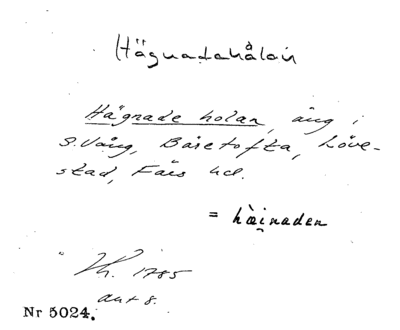 Hägnadehålan
Hägnade holan, äng i
S. Vång, Båretofta, Löve-
stad, Färs hd.
= hä̀i̯naden
" Kh. 1785
akt 8.
Nr 5024.